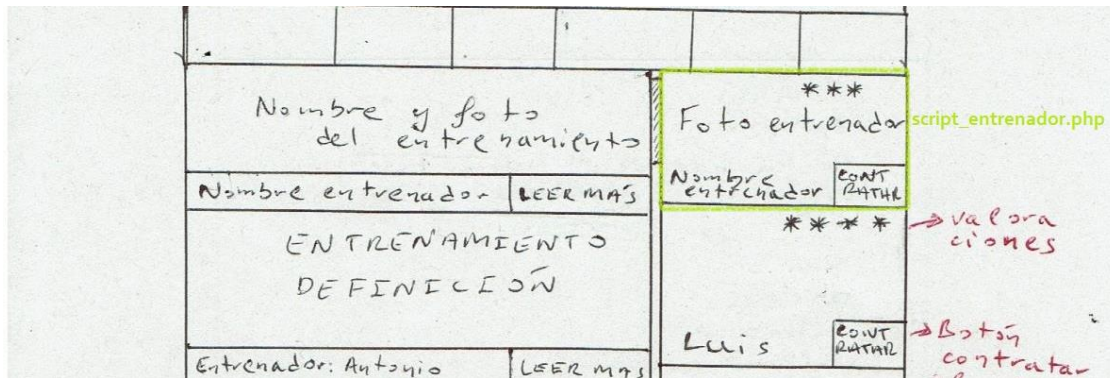 Nombre y foto
del entrenamiento
Nombre entrenador
LEER MAS
ENTRENAMIENTO
DEFINICIÓN
Entrenador: Antonio
LEER MAS
***
Foto entrenador
script_entrenador.php
Nombre
entrenador
CONT
RATAR
****
valora
ciones
Luis
CONT
RATAR
Botón
contratar